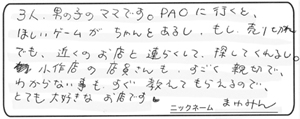 3人、男の子のママです。PAOに行くと、
ほしいゲームがちゃんとあるし、もし、売り切れ
でも、近くのお店と連らくして、探してくれるし。
小作店の店員さんも、すごく親切で、
わからない事もすぐ教えてもらえるので、
とても大好きなお店です。
ニックネーム まゆみん